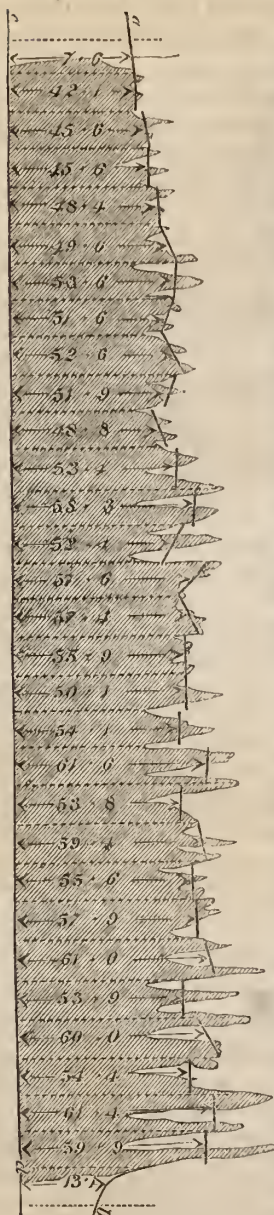 7·6
42·1
45·6
45·6
48·4
49·6
53·6
51·6
52·6
51·9
48·8
53·4
58·3
52·4
57·6
57·4
55·9
50·1
54·1
61·6
53·8
59·4
55·6
57·9
61·0
53·9
60·0
54·4
61·4
59·9
13·1